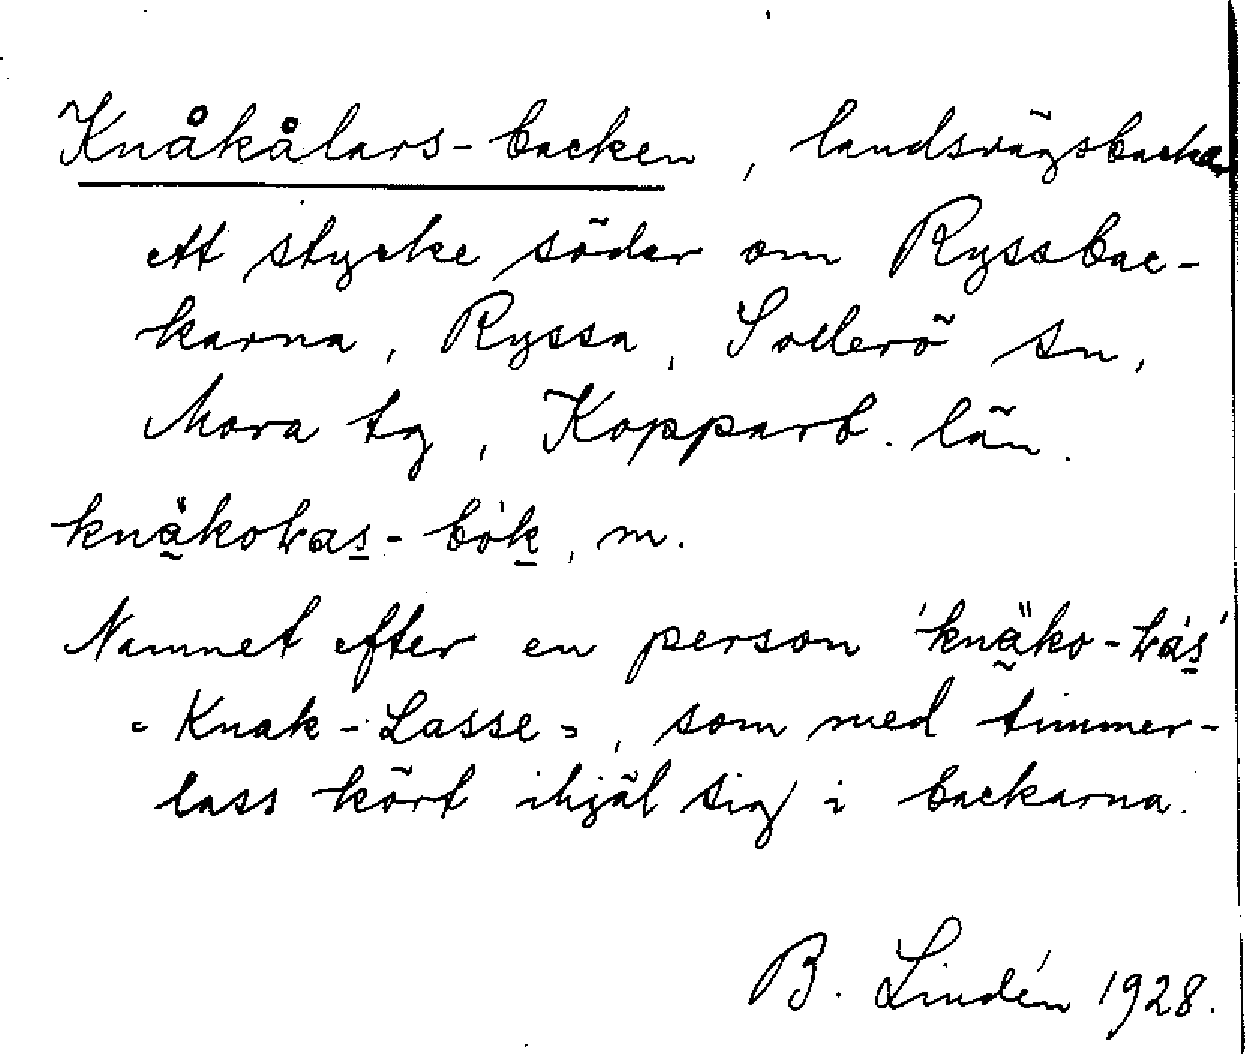 Knåkålars-backen, landsvägsbackar
ett stycke söder om Ryssbac-
karna, Ryssa, Sollerö sn,
Mora tg, Kopparb. län.
bök, m.
Namnet efter en person
= Knak-Lasse =, som med timmer-
lass kört ihjäl sig i backarna.
B. Lindén 1928.